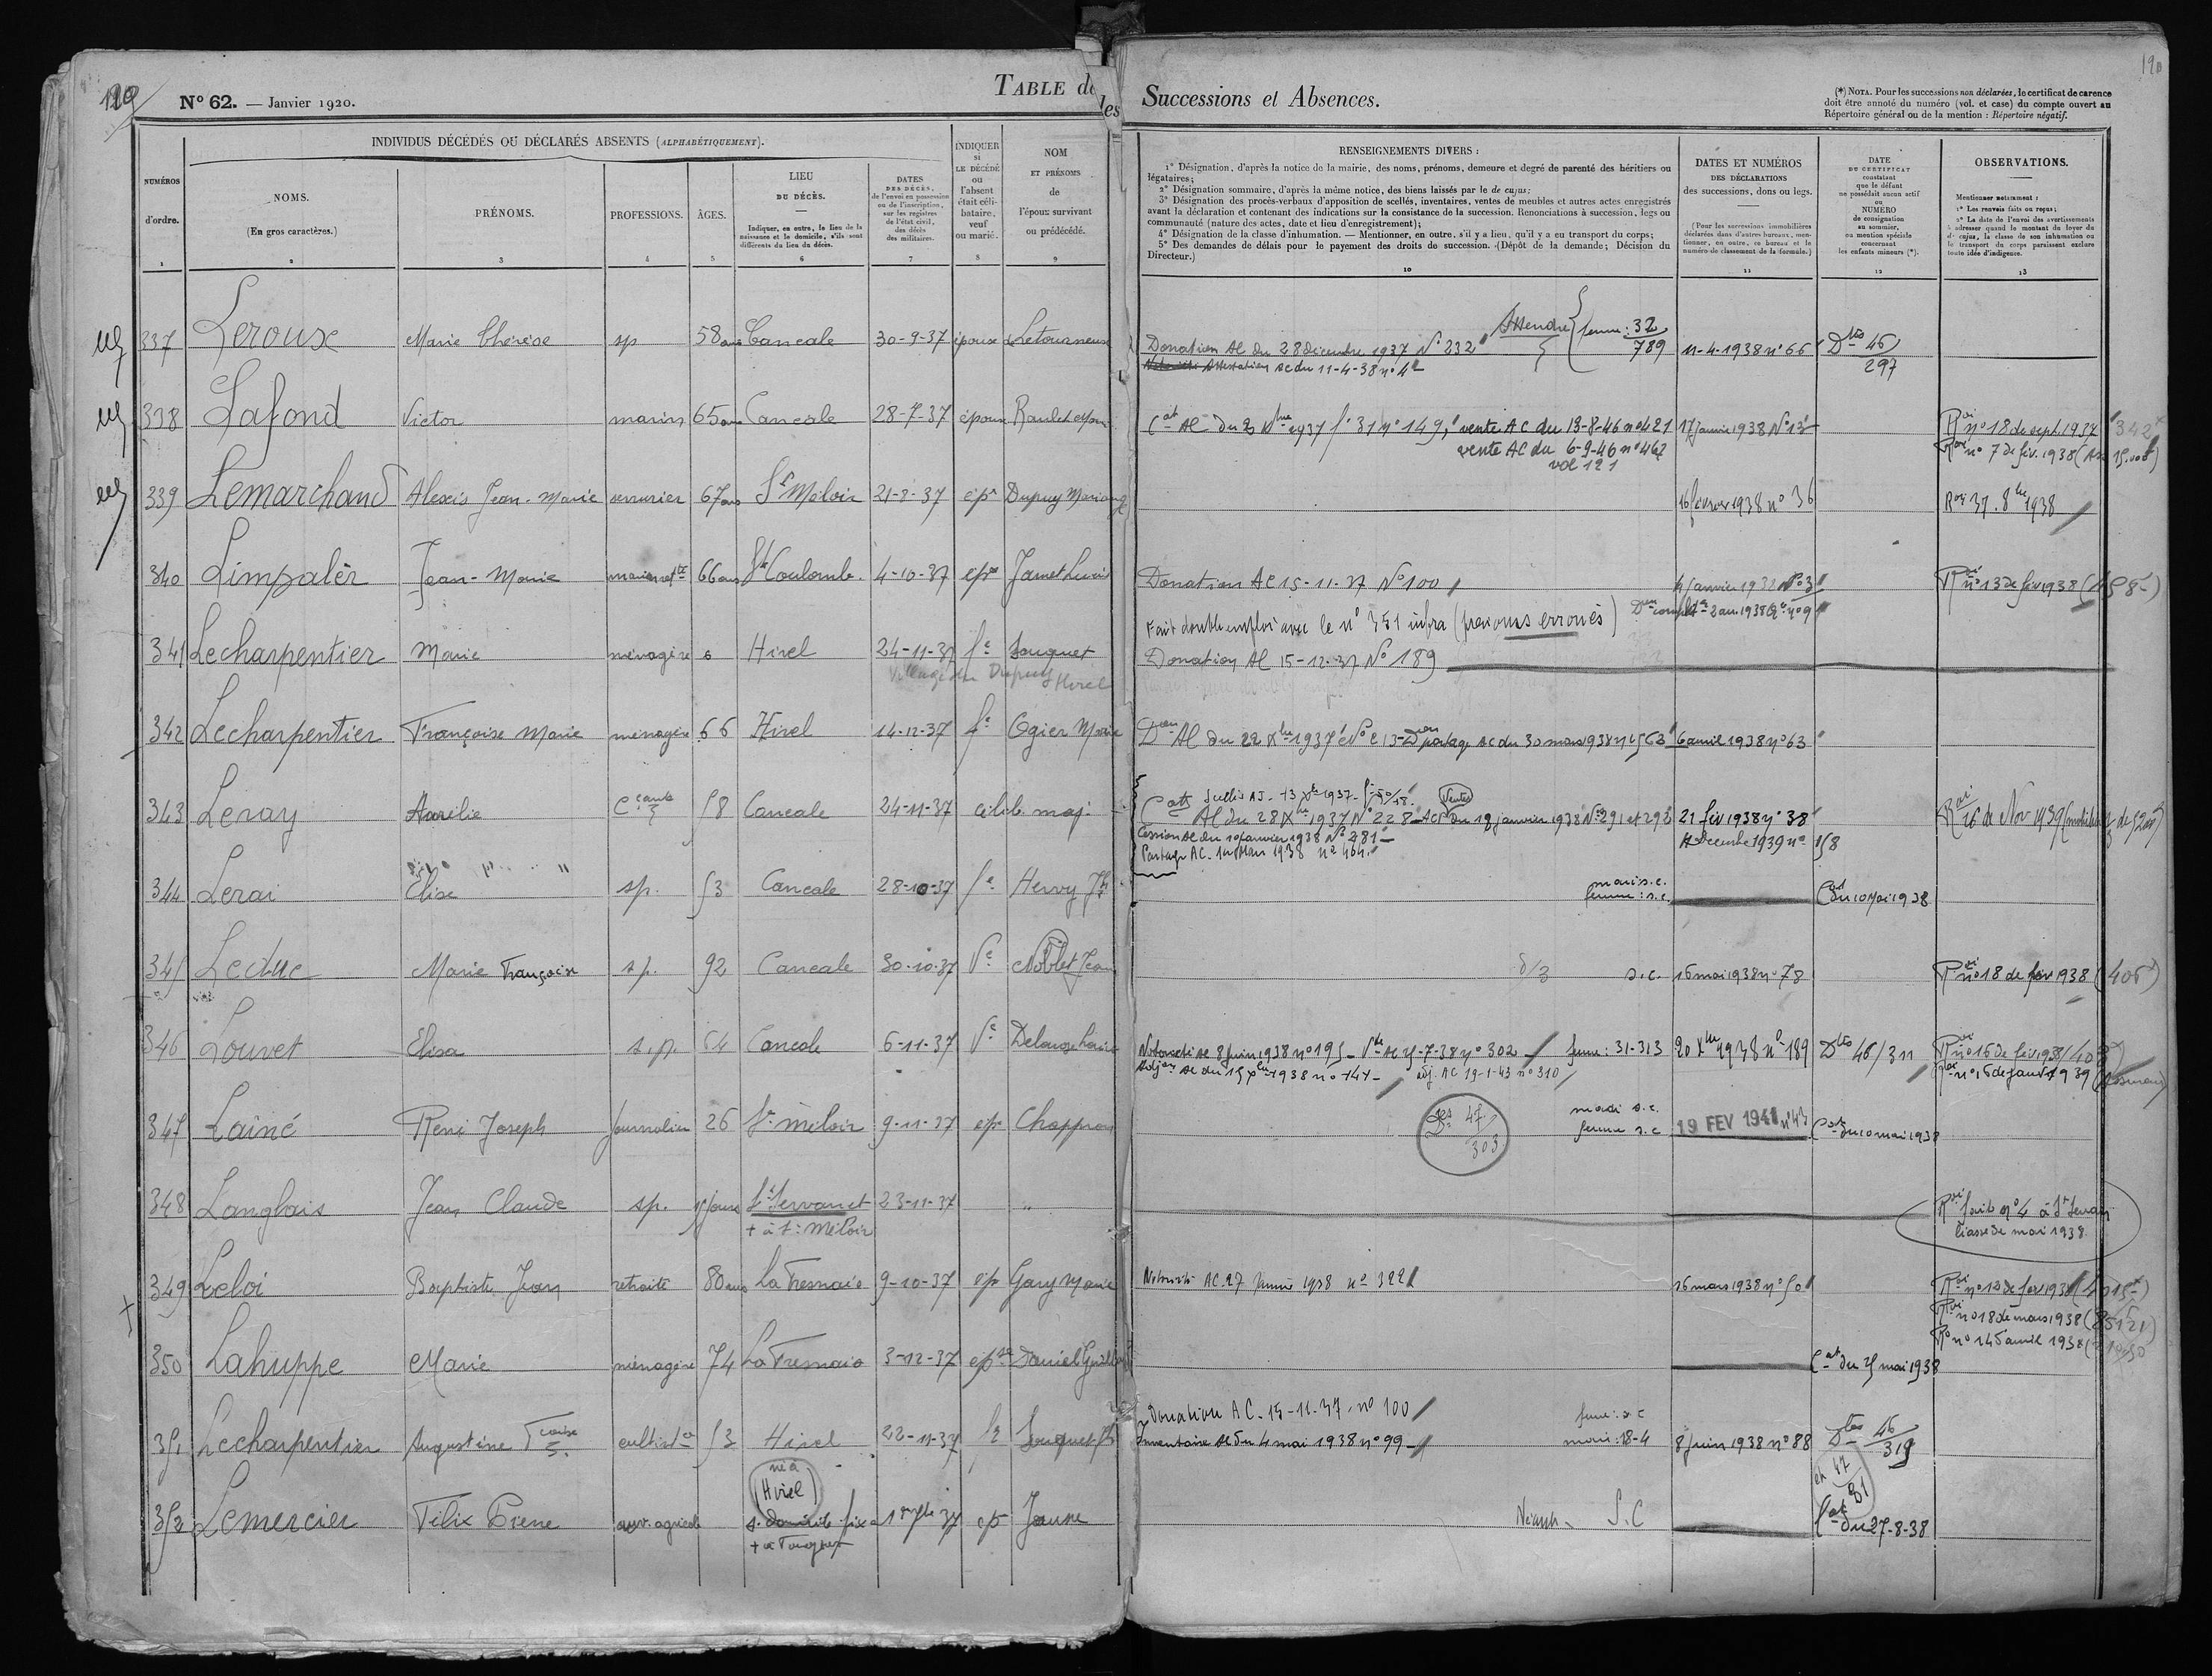 190
No 62. — Janvier 1920.
TABLE des
Successions et Absences.
(*) NOTA. Pour les successions non déclarées, le certificat de carence
doit être annoté du numéro (vol. et case) du compte ouvert au
Répertoire général ou de la mention : Répertoire négatif.
INDIVIDUS DÉCÉDÉS OU DÉCLARÉS ABSENTS (ALPHABÉTIQUEMENT).
NUMÉROS
d'ordre.
1
NOMS.
(En gros caractères.)
2
PRÉNOMS.
3
PROFESSIONS.
4
ÂGES.
5
LIEU
DU DÉCÈS.
Indiquer, en outre, le lieu de la
naissance et le domicile, s'ils sont
différents du lieu du décès.
6
DATES
DES DÉCÈS,
de l'envoi en possession
ou de l'inscription,
sur les registres
de l'état civil,
des décès
des militaires.
7
INDIQUER
si
LE DÉCÉDÉ
ou
l'absent
était céli-
bataire,
veuf
ou marié.
8
NOM
ET PRÉNOMS
de
l'époux survivant
ou prédécédé.
9
RENSEIGNEMENTS DIVERS :
1° Désignation, d'après la notice de la mairie, des noms, prénoms, demeure et degré de parenté des héritiers ou
légataires;
2° Désignation sommaire, d'après la même notice, des biens laissés par le de cujus;
3° Désignation des procès-verbaux d'apposition de scellés, inventaires, ventes de meubles et autres actes enregistrés
avant la déclaration et contenant des indications sur la consistance de la succession. Renonciations à succession, legs ou
communauté (nature des actes, date et lieu d'enregistrement);
4° Désignation de la classe d'inhumation. — Mentionner, en outre, s'il y a lieu, qu'il y a eu transport du corps;
5° Des demandes de délais pour le payement des droits de succession. (Dépôt de la demande; Décision du
Directeur.)
10
DATES ET NUMÉROS
DES DÉCLARATIONS
des successions, dons ou legs.
(Pour les successions immobilières
déclarées dans d'autres bureaux, men-
tionner, en outre, ce bureau et le
numéro de classement de la formule.)
11
DATE
DU CERTIFICAT
constatant
que le défunt
ne possédait aucun actif
ou
NUMÉRO
de consignation
au sommier,
ou mention spéciale
concernant
les enfants mineurs (*).
12
OBSERVATIONS.
Mentionner notamment :
1° Les renvois faits ou reçus;
2° La date de l'envoi des avertissements
à adresser quand le montant du loyer du
de cujus, la classe de son inhumation ou
le transport du corps paraissent exclure
toute idée d'indigence.
13
337 Leroux Marie Thérèse sp 58 ans Cancale 30-9-37 épouse Letourneux
Attendre femme : 32/789
Donation AC du 28 décembre 1937 N° 232 11-4-1938 n° 66 Dtes 46/297
Attestation AC du 11-4-38 n° 42
338 Lafond Victor marin 65 ans Cancale 28-7-37 époux Raulet
Cat AC du 2 Xbre 1937 f° 31 n° 149, vente AC du 13-8-46 n° 421 17 janvier 1938 N° 13 Roi n° 18 de sept. 1937 342
vente AC du 6-9-46 n° 462
vol 121
n° 7 de fév. 1938
339 Lemarchand Alexis Jean-Marie serrurier 67 ans St Méloir 21-8-37 épx Dupuy
16 février 1938 n° 36 Roi 37. 8bre 1938
340 Limpalër Jean-Marie marin 66 ans St Coulomb. 4-10-37 épx Jamet
Donation AC 15-11-37 N° 100 janvier 1938 N° 3 Roi n° 13 de fév 1938
341 Lecharpentier Marie ménagère Hirel 24-11-37 fe Souquet
Fait double emploi avec le n° 351 infra (prénoms erronés)
Donation AC 15-12-37 N° 189
Hirel
342 Lecharpentier Françoise Marie ménagère 66 Hirel 14-12-37 fe Ogier Marie
Don AC du 22 Xbre 1937 N° 213 - partage AC du 30 mars 938 n° 563 6 avril 1938 n° 63
343 Leray Aurélie 58 Cancale 24-11-37 célib. maj.
Scellés AJ. 13 Xbre 1937
AC du 28 Xbre 1937 N° 228 - Ventes AC du 18 janvier 1938 N° 291 et 292 21 fév 1938 n° 38 Roi 16 de Nov 1939
Cession AC du 19 janvier 1938 N° 281
décembre 1939 n° 158
Partage AC. Mars 1938 n° 464.
344 Lerai Elise sp. 53 Cancale 28-10-37 fe Hervy
mari s.c.
femme : s.c. Cat du 10 Mai 1938
345 Leduc Marie Françoise s.p. 92 Cancale 30-10-37 Ve Noblet Jean
s.c. 16 mai 1938 n° 78 Roi n° 18 de fév 1938 (406)
346 Louvet Elisa s.p. 64 Cancale 6-11-37 Ve
Notoriété AC 8 juin 1938 n° 195 - Vte AC 5-7-38 n° 302 femme : 31-313 20 Xbre 1938 n° 189 Dtes 46/311 Roi n° 16 de fév 1938
AC du 15 Xbre 1938 n° 741 - adj. AC 19-1-43 n° 310
n° 16 de janv 1939
347 Lainé René Joseph journalier 26 St Méloir 9-11-37 ép Chappron
47/303
mari s.c.
femme s.c. 19 FEV 1941 n° 43 Cat du 10 mai 1938
348 Langlais Jean Claude sp. jours St Servan et 23-11-37
+ à St Méloir
Roi fait n° 4 à St Servan
liasse de mai 1938
349 Leloi Baptiste Jean retraité 80 ans La Fresnaie 9-10-37 ép Gary Marie
Notoriété AC 27 janvier 1938 n° 322 16 mars 1938 n° 50 Roi n° 12 de fév 1938
Roi n° 18 de mars 1938
n° 14 avril 1938
350 Lahuppe Marie ménagère 74 La Fresnaie 3-12-37 épse Daniel
Cat du 25 mai 1938
351 Lecharpentier Augustine Fçoise cultivtce 53 Hirel 22-11-37 fe Souquet
Donation AC - 15-11-37. n° 100 femme : s.c
Inventaire AC du 4 mai 1938 n° 99 mari : 18-4 8 juin 1938 n° 88 Dtes 46/319
352 Lemercier Félix Pierre ouv. agricole né à (Hirel) 37 ép Jeune
s. domicile fixe
+ à Fougères
Néant - S.C et 47/81 Cat du 27-8-38